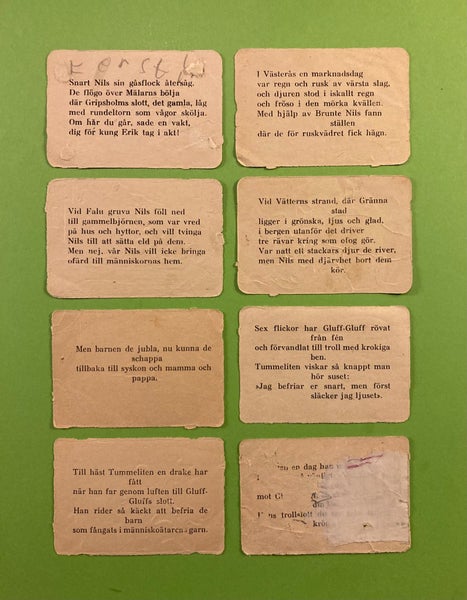 Kerstin
Snart Nils sin gåsflock återsåg.
De flögo över Mälarns bölja
där Gripsholms slott, det gamla, låg
med rundeltorn som vågor skölja.
Om här du går, sade en vakt,
dig för kung Erik tag i akt!
I Västerås en marknadsdag
var regn och rusk av värsta slag,
och djuren stod i iskallt regn
och fröso i den mörka kvällen.
Med hjälp av Brunte Nils fann
ställen
där de för ruskvädret fick hägn.
Vid Falu gruva Nils föll ned
till gammelbjörnen, som var vred
på hus och hyttor, och vill tvinga
Nils till att sätta eld på dem.
Men nej, vår Nils vill icke bringa
ofärd till människornas hem.
Vid Vätterns strand, där Gränna
stad
ligger i grönska, ljus och glad,
i bergen utanför det driver
tre rävar kring som efog gör.
Var natt ett stackars djur de river,
men Nils med djärvhet bort dem
kör.
Men barnen de jubla, nu kunna de
schappa
tillbaka till syskon och mamma och
pappa.
Sex flickor har Gluff-Gluff rövat
från fén
och förvandlat till troll med krokiga
ben.
Tummeliten viskar så knappt man
hör suset:
»Jag befriar er snart, men först
släcker jag ljuset».
Till häst Tummeliten en drake har
fått
när han far genom luften till Gluff-
Gluffs slott.
Han rider så käckt att befria de
barn
som fångats i människoätarens garn.
en dag han
mot
trollslott